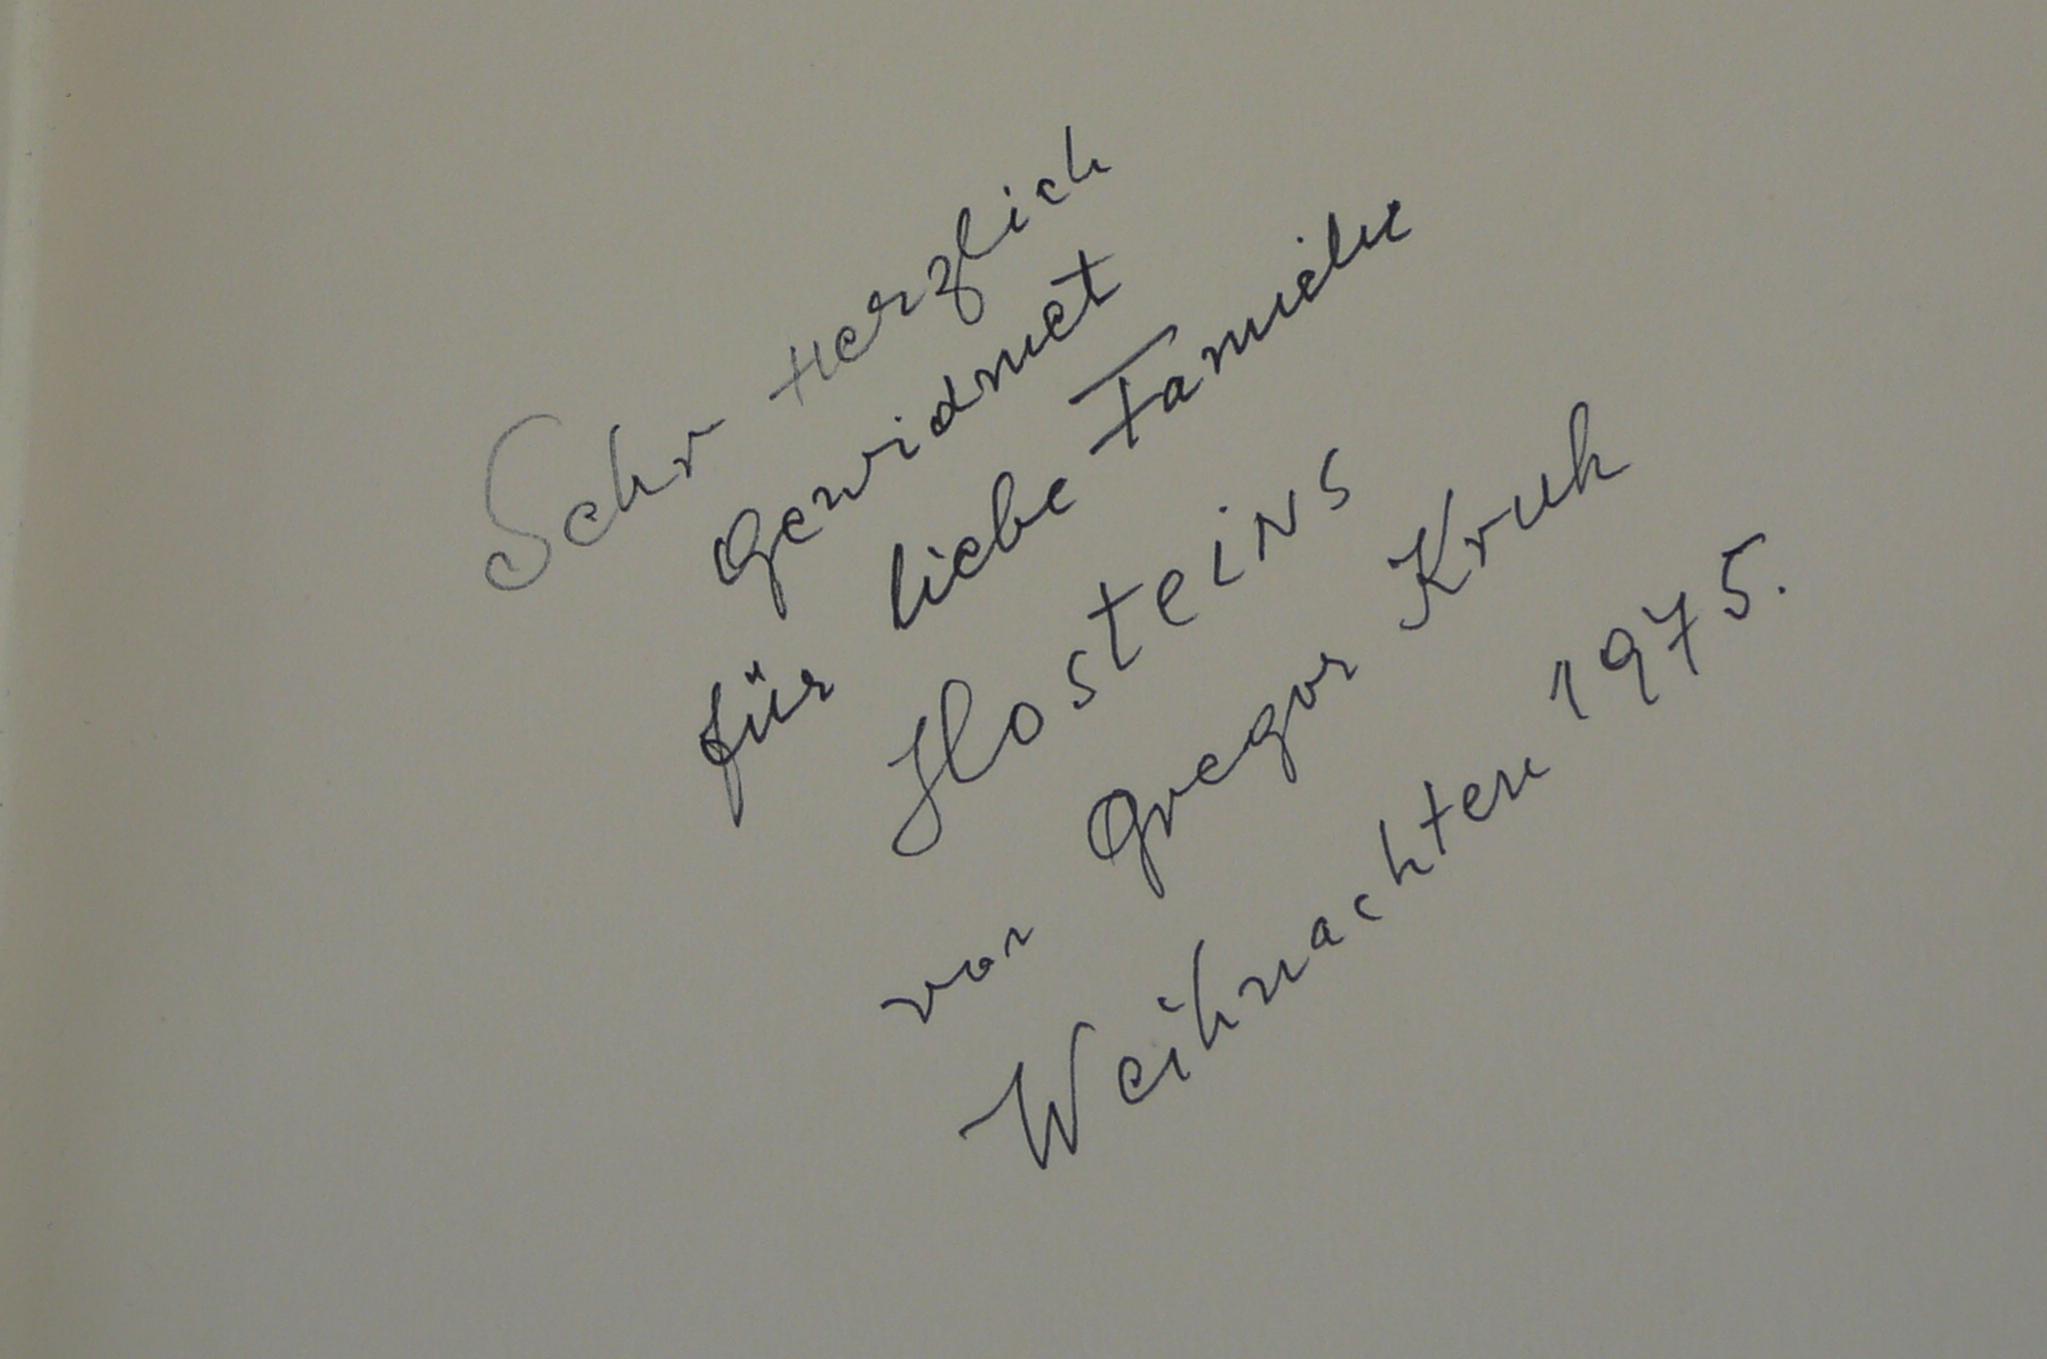 Sehr Herzlich
Gewidmet
für liebe Familie
Hosteins
von Gregor Kruk
Weihnachten 1975.